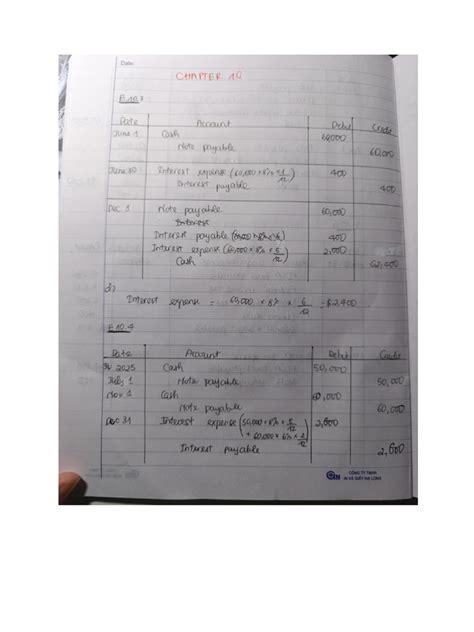 Date:
CHAPTER 10
E 10.3
Date Account Debit Credit
June 1 Cash 60,000
Note payable 60,000
June 30 Interest expense (60,000 × 8% × 1/12) 400
Interest payable 400
Dec 1 Note payable 60,000
Interest payable (60,000 × 8% × 1/12) 400
Interest expense (60,000 × 8% × 5/12) 2,000
Cash 62,400
d)
Interest expense = 60,000 × 8% × 6/12 = $2,400
E 10.4
Date Account Debit Credit
2025 Cash 50,000
July 1 Note payable 50,000
Nov 1 Cash 60,000
Note payable 60,000
Dec 31 Interest expense (50,000 × 8% × 6/12 2,600
+ 60,000 × 6% × 2/12)
Interest payable 2,600
CÔNG TY TNHH
IN VÀ GIẤY HẠ LONG